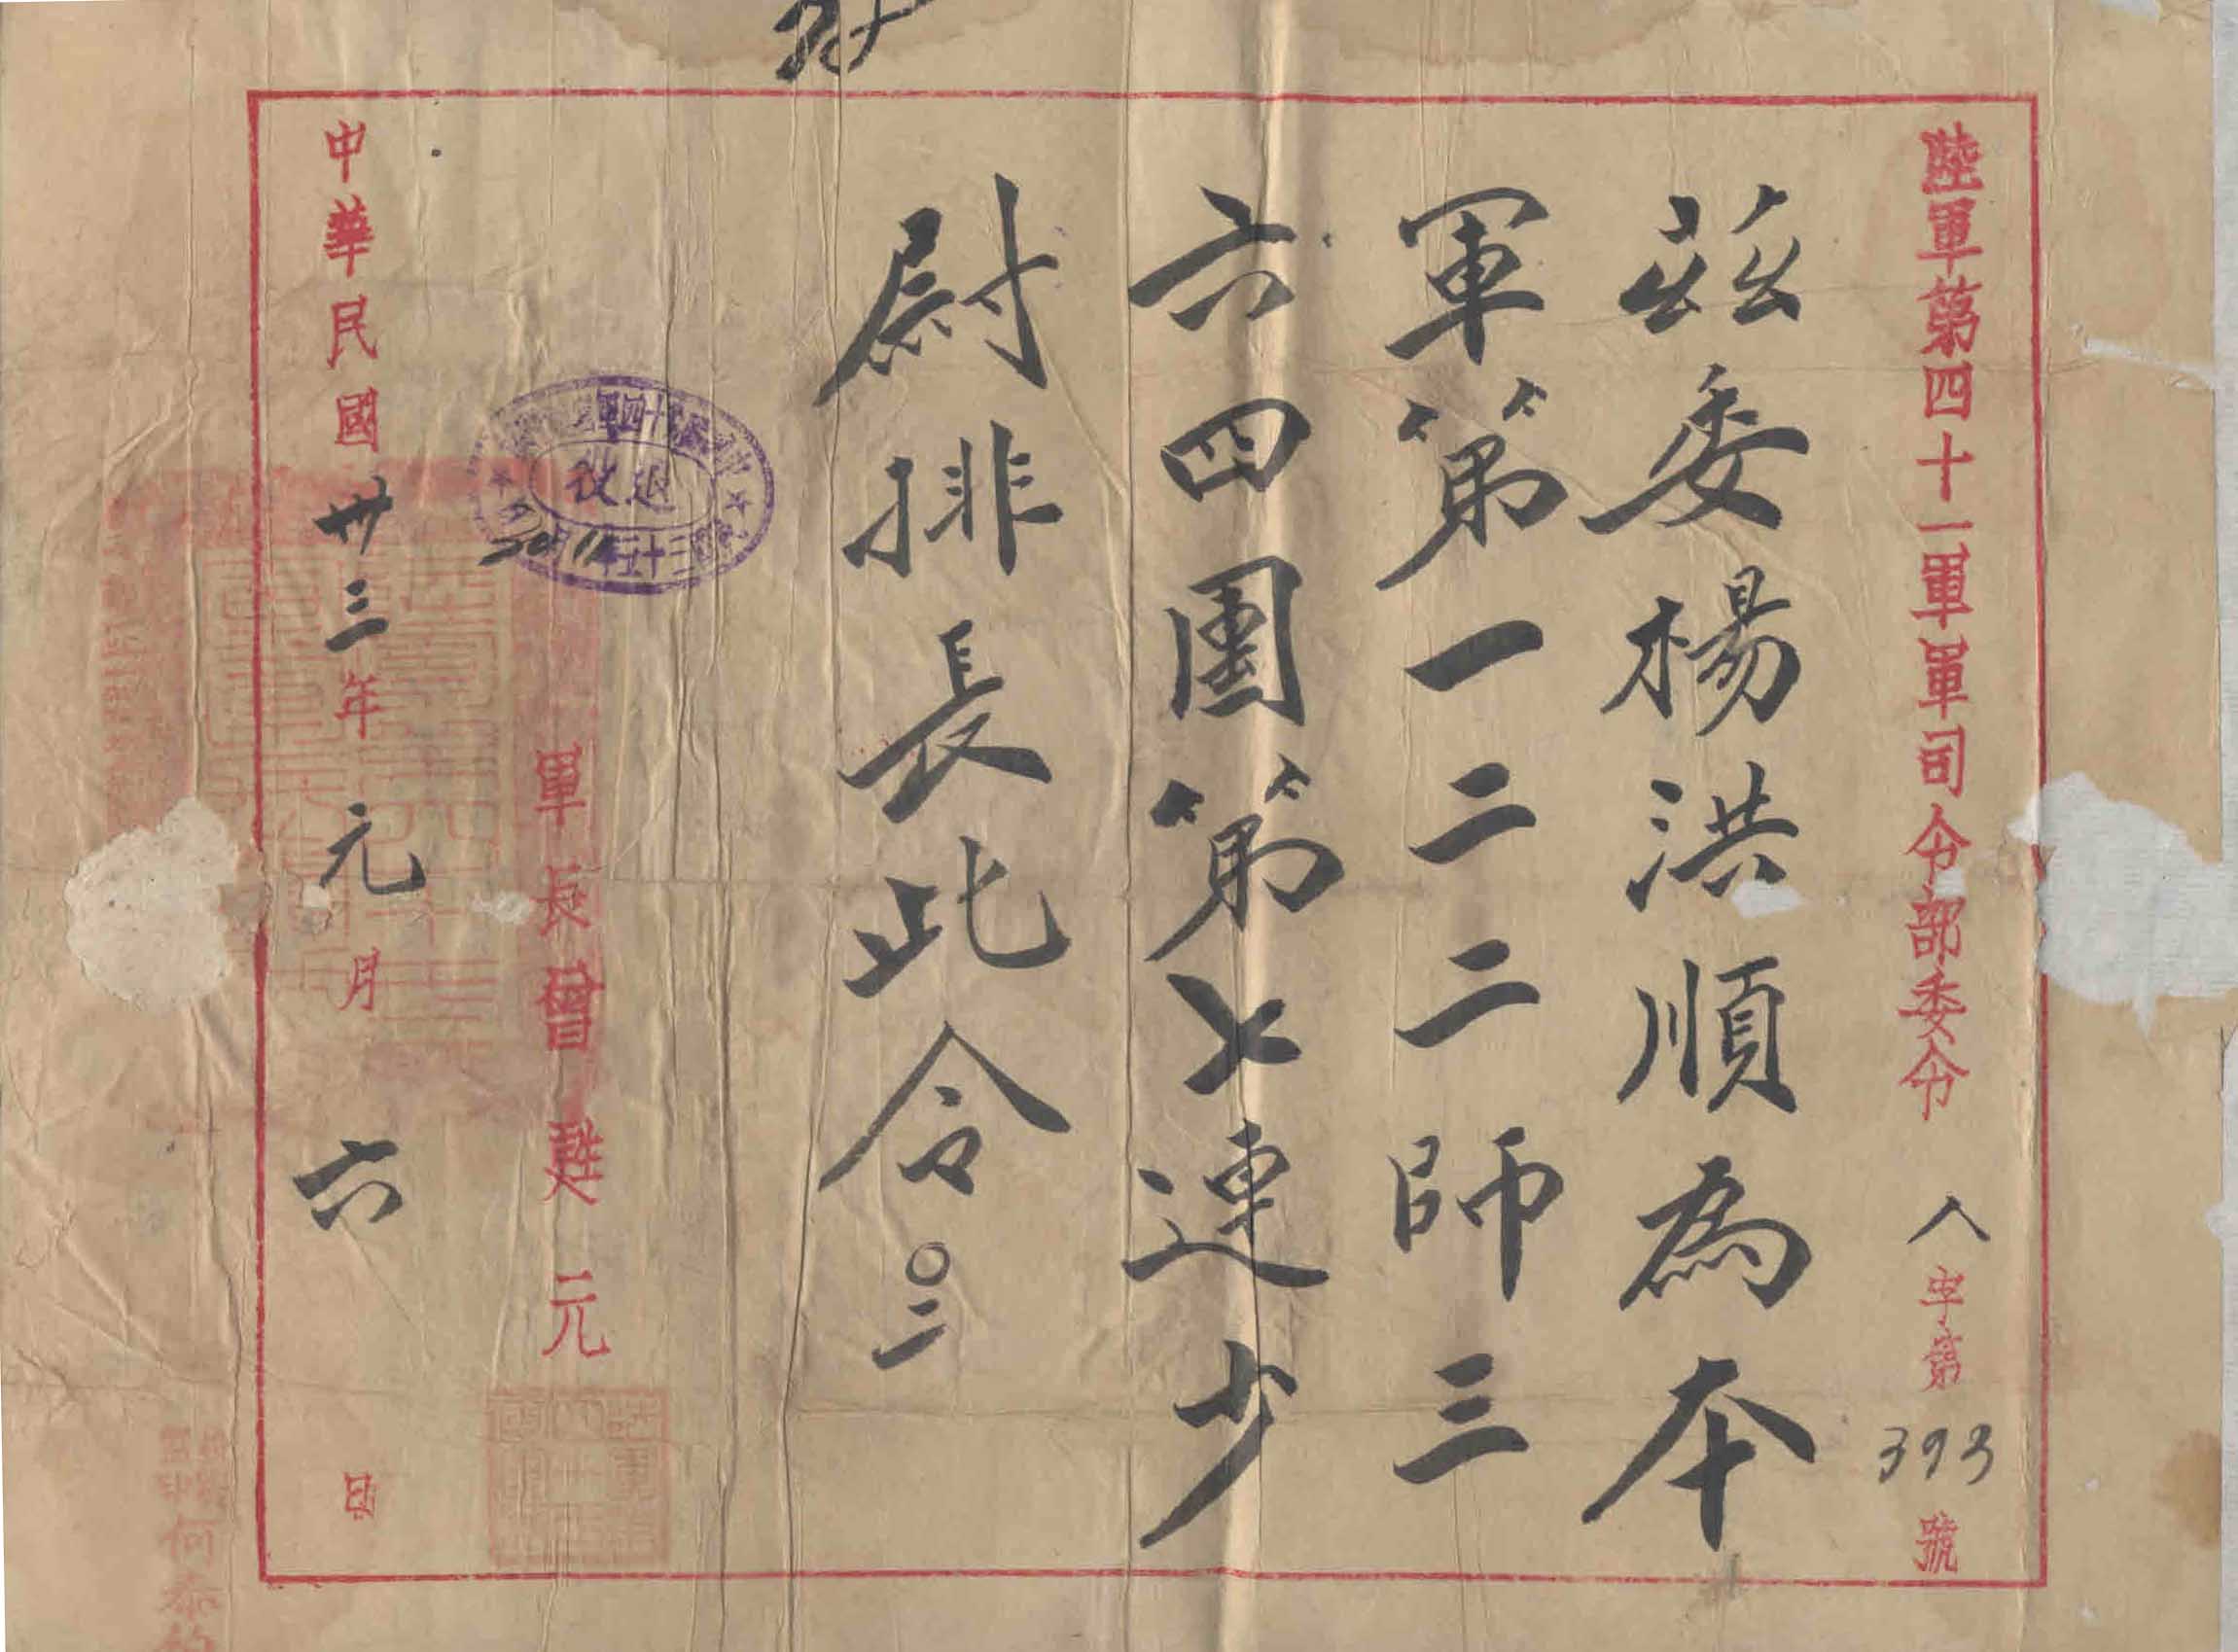 陸軍第四十一軍軍司令部委令 八字第393號
茲委楊洪順為本
軍第一二二師三
六四團第七連少
尉排長此令〇二
軍長曾甦元
退役
中華民國卅三年元月六日